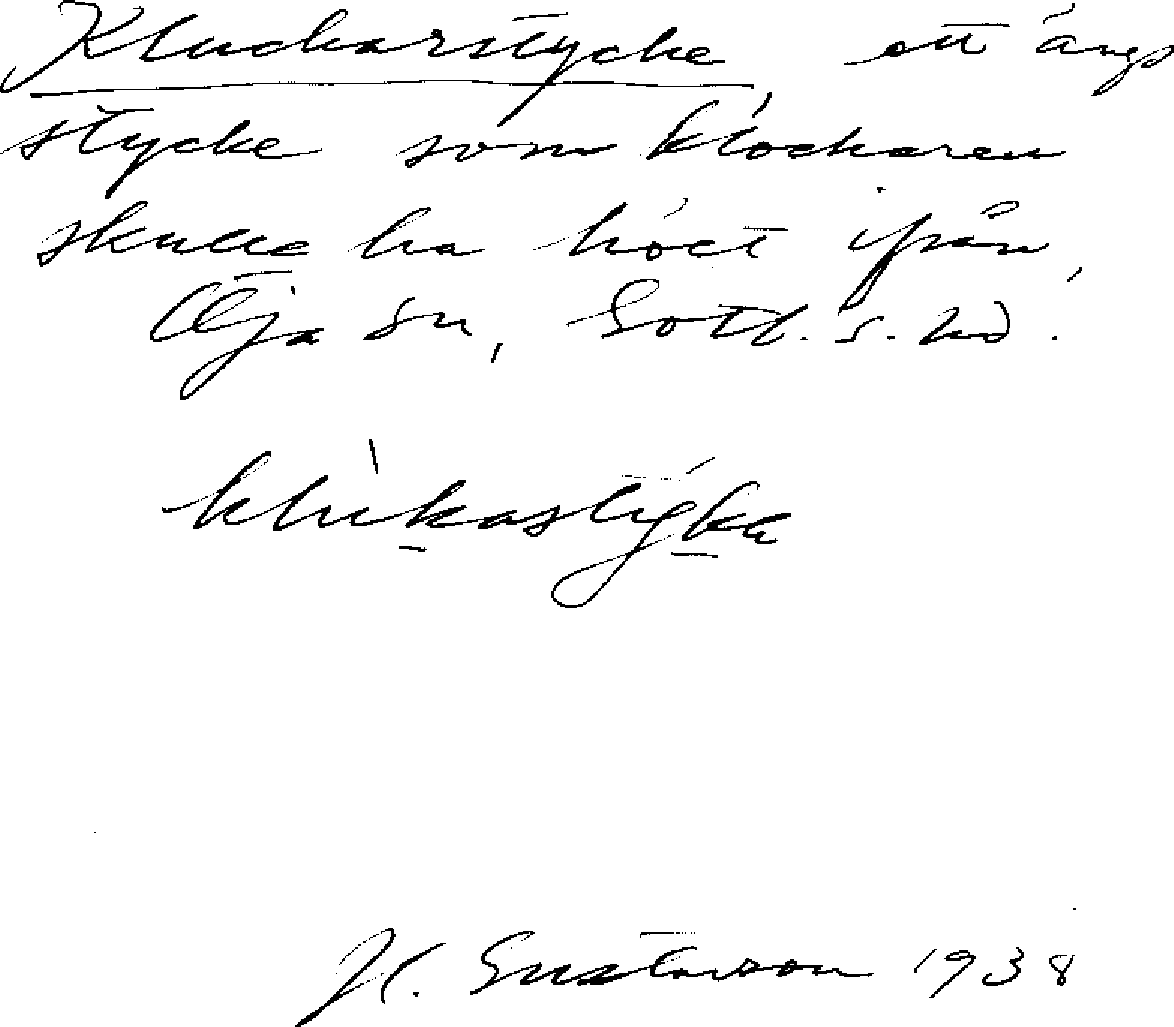 Kluckarstycke, ett ängs
stycke som klockaren
skulle ha höet ifrån,
Öja sn, Gotl. s. hd.
klùkastýka
H. Gustavson 1938